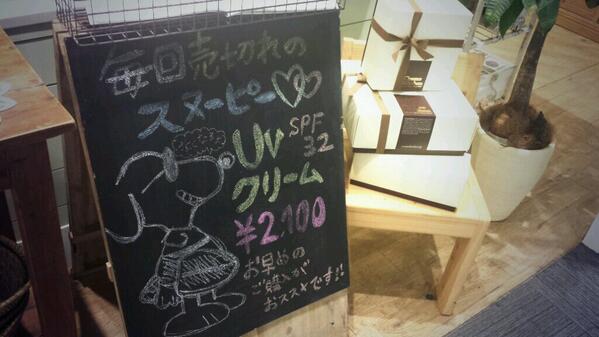 毎回売切れの
スヌーピー
UV SPF
32
クリーム
¥2,100
お早めの
ご購入が
おススメです!!